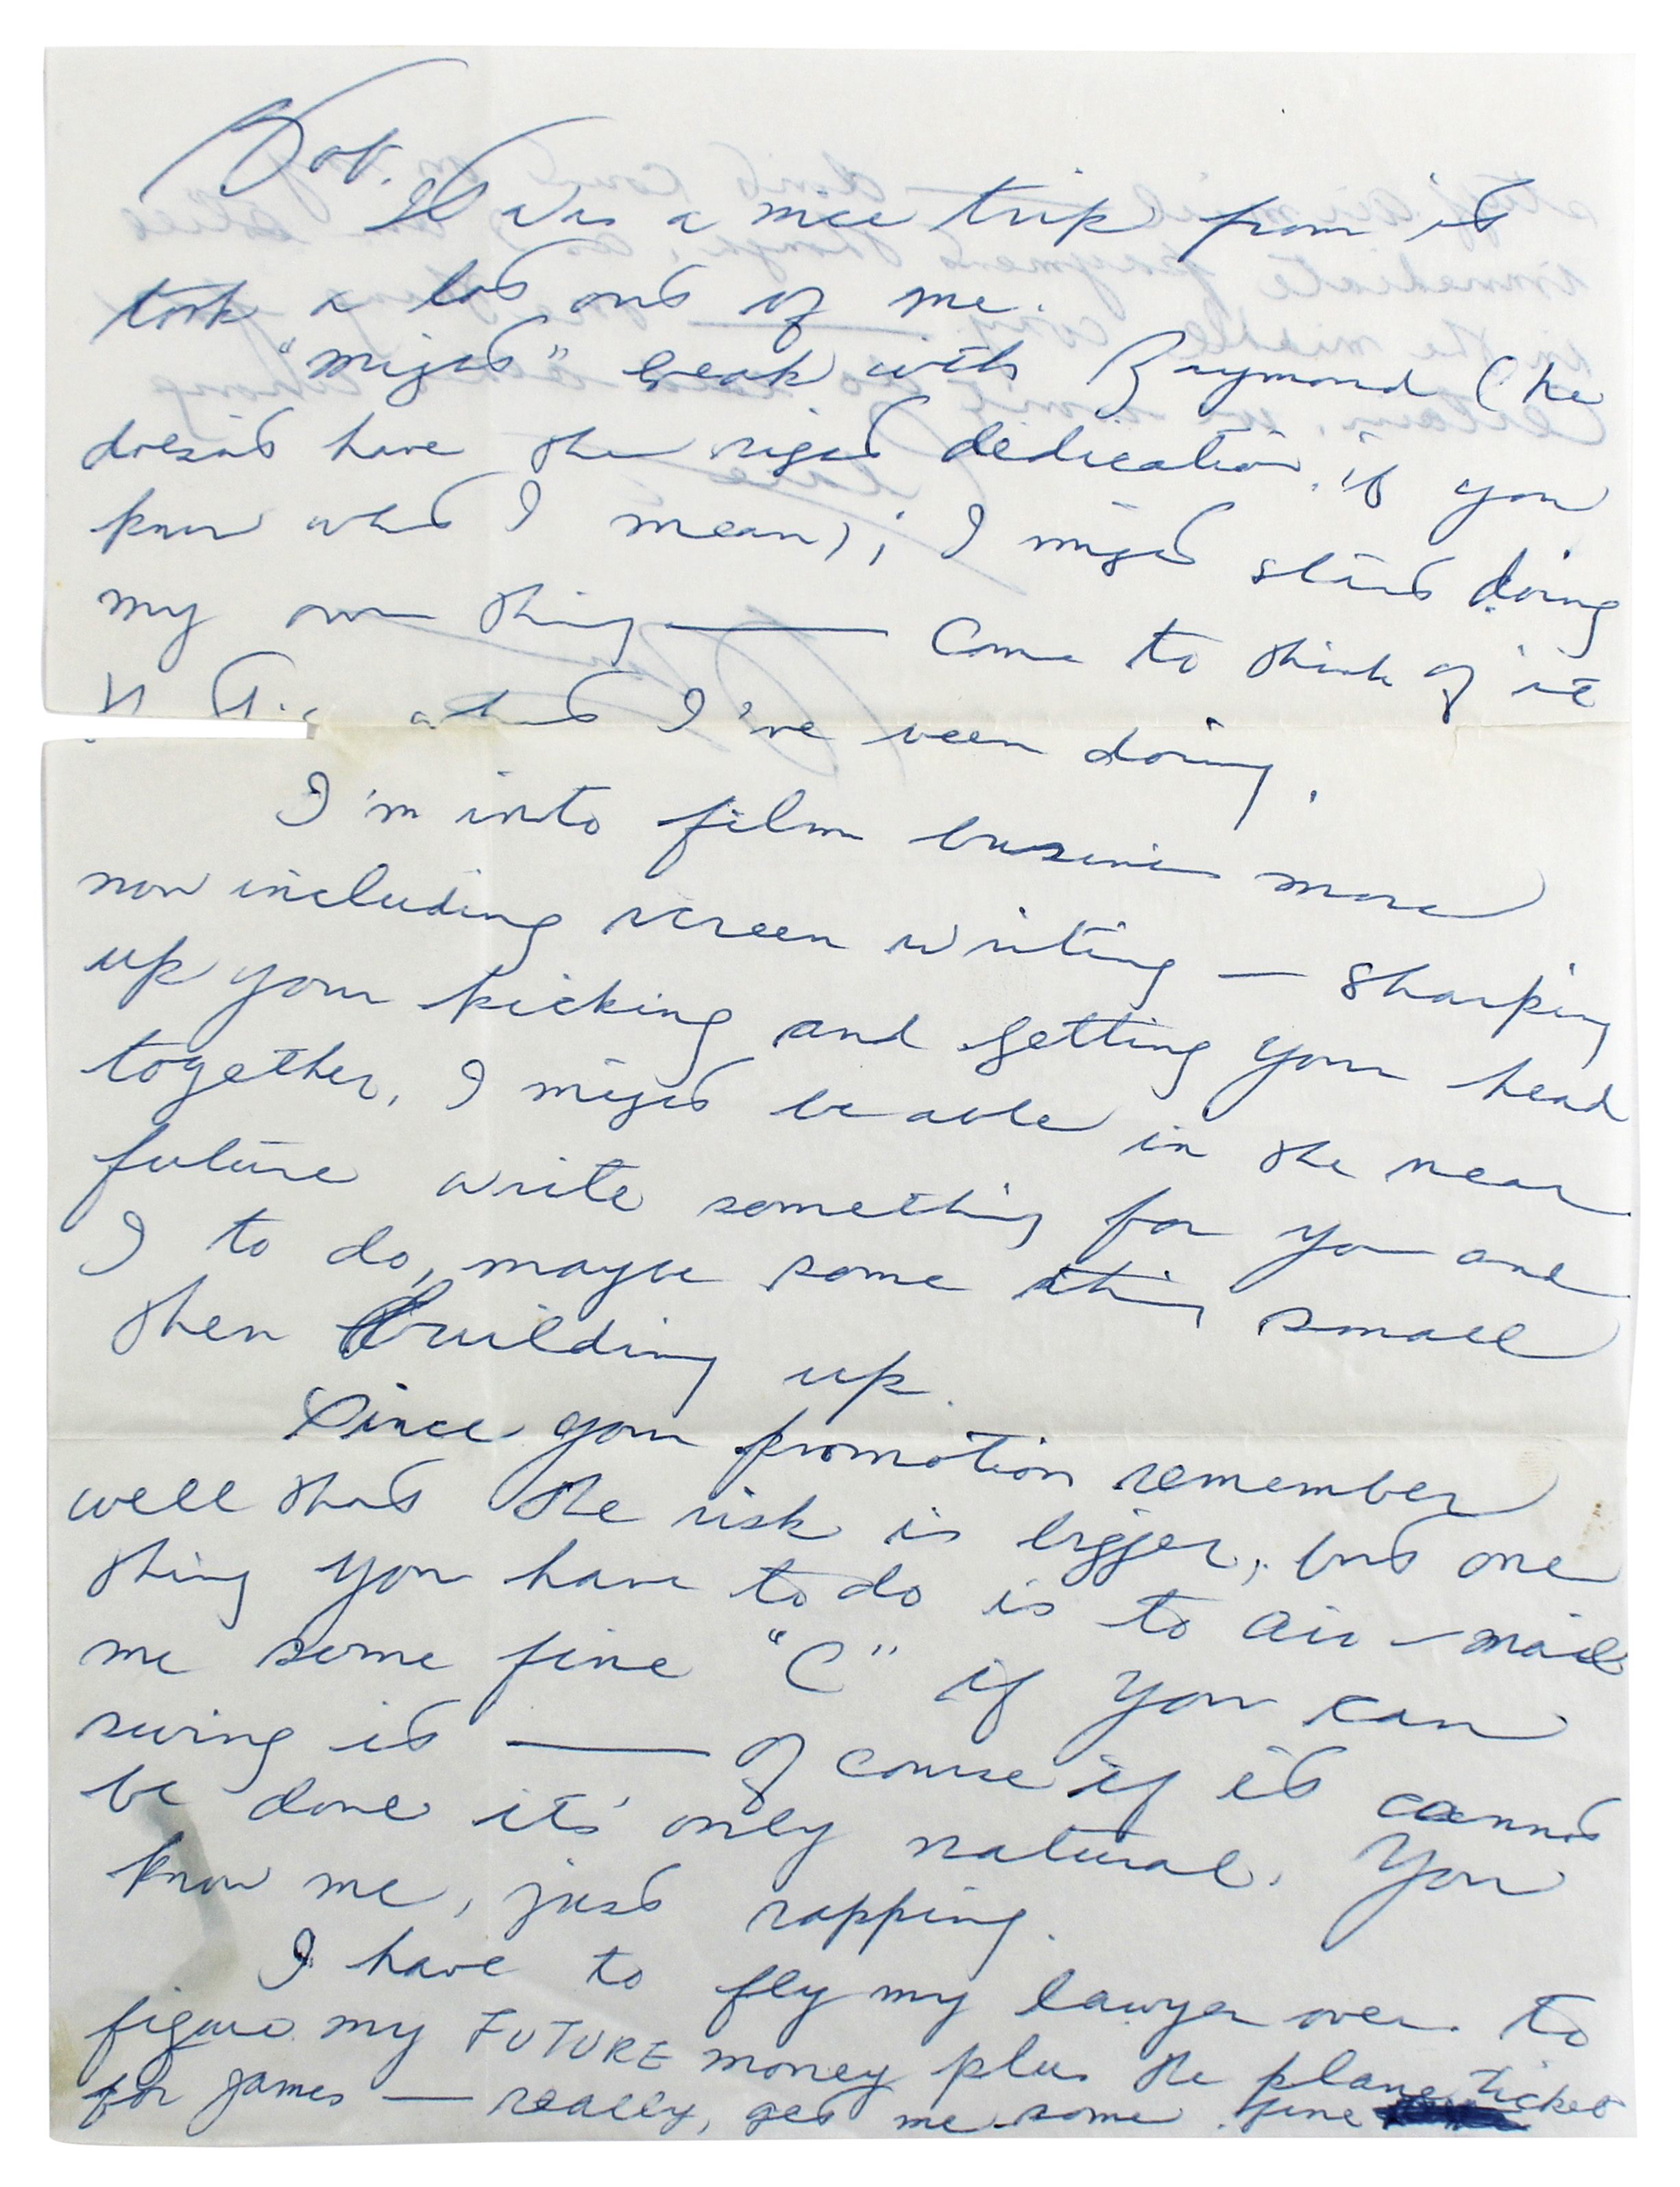 Bob.
It was a nice trip from it
took a lot out of me.
"might" break with Raymond (he
doesn't have the right dedication, if you
know what I mean); I might start doing
my own thing — Come to think of it
what I've been doing.
I'm into film business more
now including screen writing — Sharping
up your kicking and getting your head
together, I might be able in the near
future write something for you and
I to do, maybe some thing small
then building up.
Since your promotion remember
well that the risk is bigger, but one
thing you have to do is to air-mail
me some fine "C" if you can
swing it — Of course if it cannot
be done it's only natural. You
know me, just rapping.
I have to fly my lawyer over to
figure my FUTURE money plus the plane ticket
for James — really, get me some fine